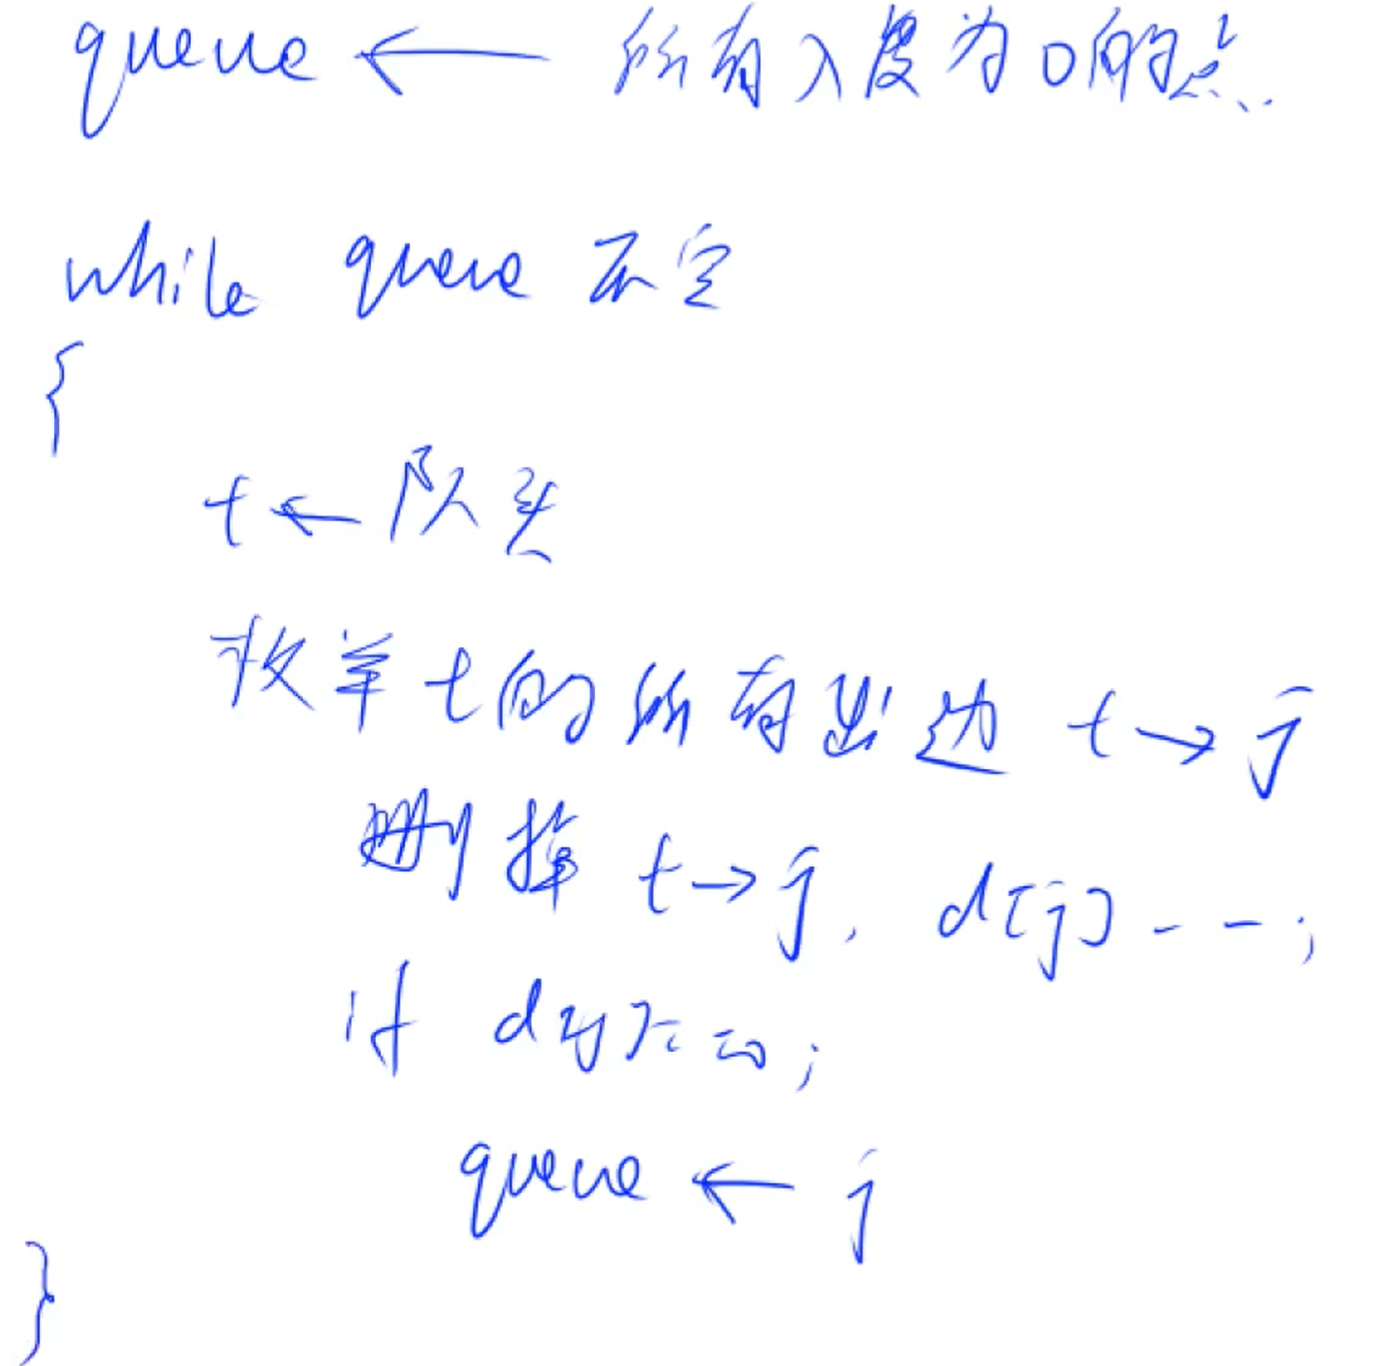 queue ← 所有入度为0的点
while queue 不空
{
t ← 队头
枚举 t的所有出边 t → j
删掉 t → j, d[j]--;
if d[j] == 0;
queue ← j
}